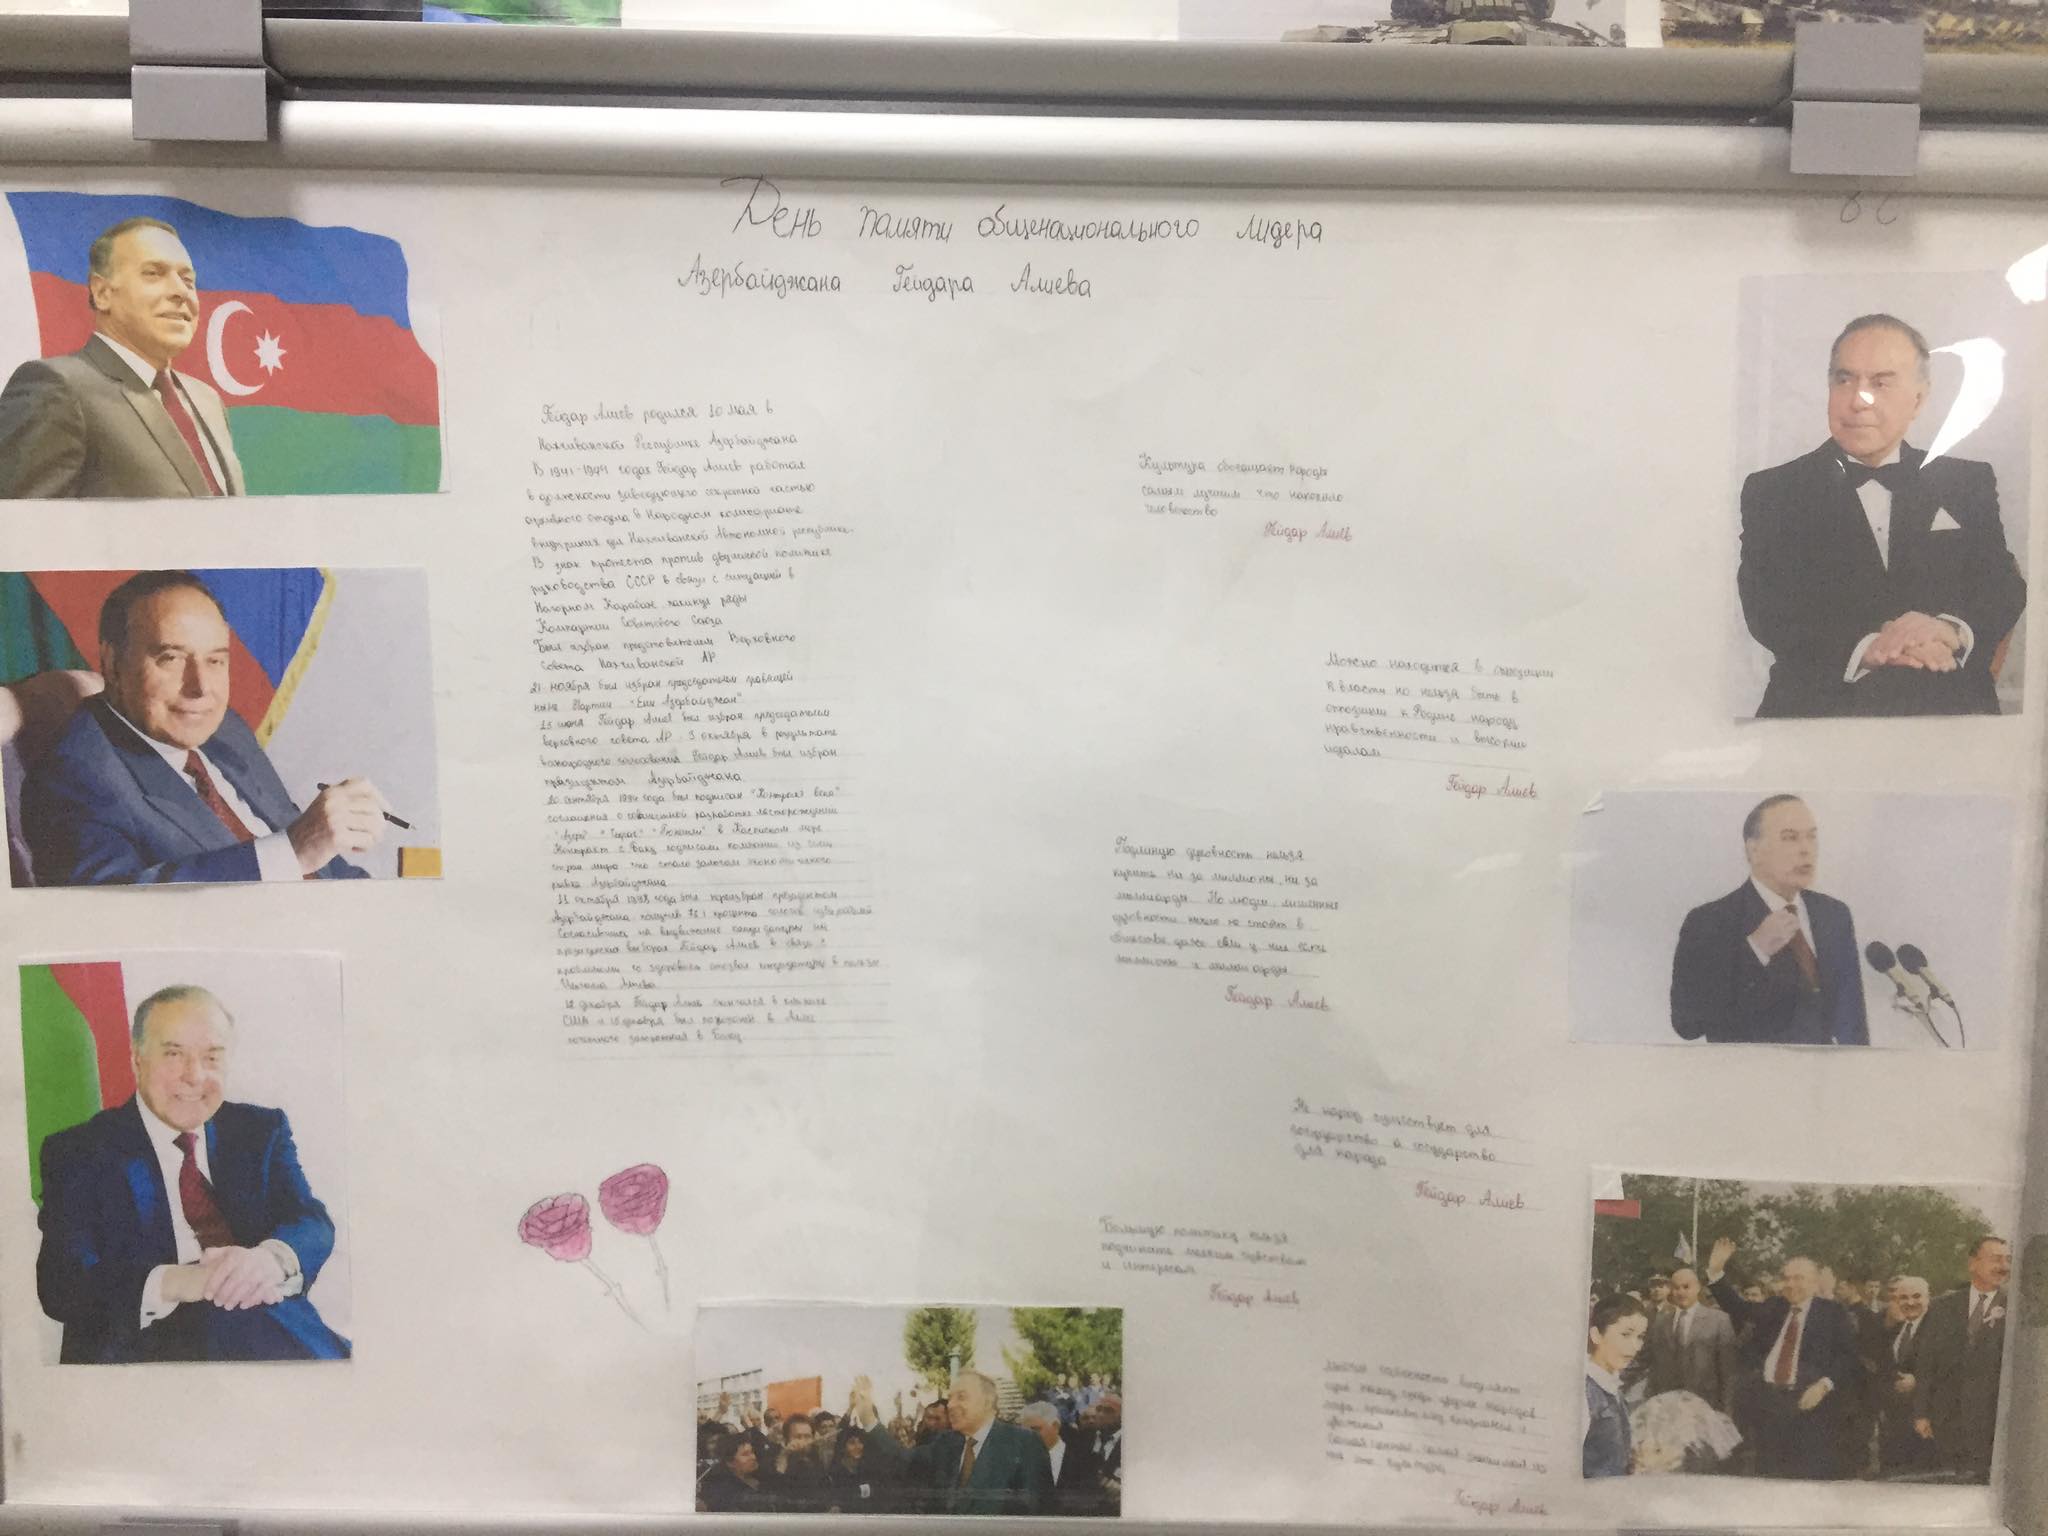 День памяти общенационального лидера
Азербайджана Гейдара Алиева
8 С
Гейдар Алиев родился 10 мая в
Нахчиванской Республике Азербайджана
В 1941-1944 годах Гейдар Алиев работал
в должности заведующего секретной частью
архивного отдела в Народном комисариате
внутриних дел Нахчиванской Автономной республике.
В знак протеста против двуличной политике
руководства СССР в связи с ситуацией в
Нагорном Карабах покинул ряды
Компартии Советского Союза
Был избран представителем Верховного
Совета Нахчиванской АР
21 ноября был избран председателем правящей
ныне Партии "Ени Азербайджан"
15 июня Гейдар Алиев был избран председателем
верховного совета АР. 3 октября в результате
всенародного голосования Гейдар Алиев был избран
президентом Азербайджана.
20 сентября 1994 года был подписан "Контракт века"
соглашения о совместной разработке месторождений
"Азери" "Чираг" "Гюнешли" в Каспийском море
Контракт с Баку подписали компании из
стран мира что стало залогом экономического
Азербайджана
11 октября 1998 года был переизбран президентом
Азербайджана получив 76,1 процента голосов избирателей
Согласившись на выдвижение кандидатуры на
президентских выборах Гейдар Алиев в связи с
проблемами со здоровьем отозвал кандидатуру в пользу
Ильхама Алиева
12 декабря Гейдар Алиев скончался в клинике
США и 15 декабря был похоронен в Аллее
почетного захоронения в Баку
"Культура обогащает народы
самым лучшим что накопило
человечество
Гейдар Алиев
Можно находится в оппозиции
к власти но нельзя быть в
оппозиции к Родине народу
нравственности и высоким
идеалам
Гейдар Алиев
Подлинную духовность нельзя
купить ни за миллионы, ни за
миллиарды. Но люди, лишенные
духовности ничего не стоят в
обществе даже если у них есть
миллионы и миллиарды
Гейдар Алиев
Не народ существует для
государства а государство
для народа
Гейдар Алиев
Большую политику нельзя
подчинять мелким чувствам
и интересам
Гейдар Алиев
нашу среди других народов
Гейдар Алиев